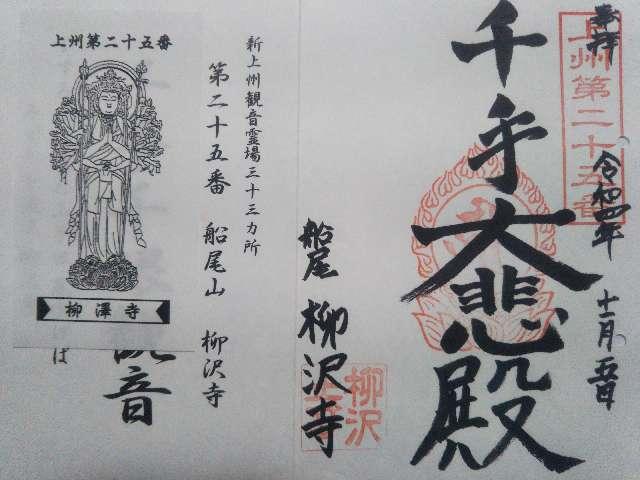 奉拝
上州第二十五番
令和四年
十一月五日
千手大悲殿
船尾
柳沢寺
柳沢
新上州観音霊場三十三カ所
第二十五番 船尾山 柳沢寺
上州第二十五番
柳澤寺
観音
ば